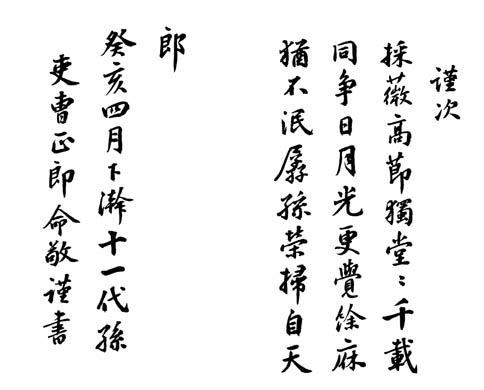 謹次
採薇高節獨堂〻千載
同争日月光更覺餘庥
猶不泯孱孫榮掃自天
郎
癸亥四月下澣十一代孫
吏曹正郎命敬謹書